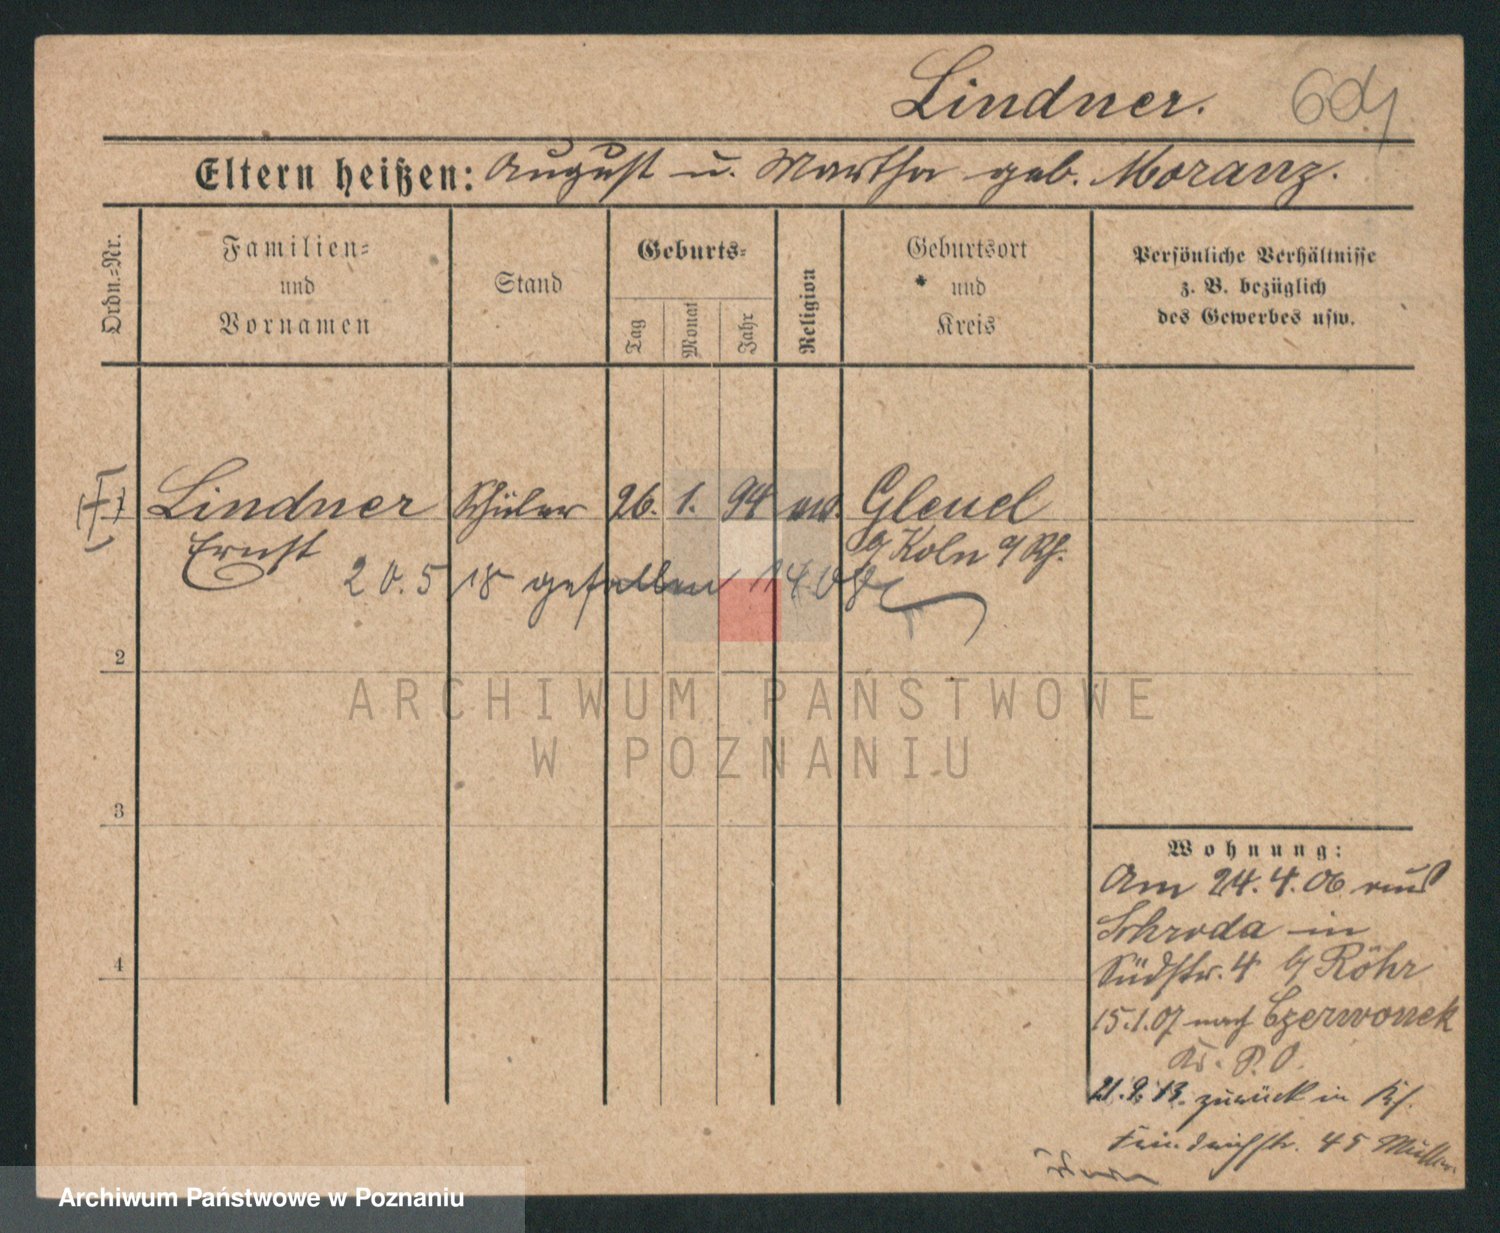 Lindner.
Eltern heißen: August u. Martha geb. Moranz.
Ordn.=Nr.
Familien=
und
Vornamen
Stand
Geburts=
Tag
Monat
Jahr
Religion
Geburtsort
und
Kreis
Persönliche Verhältnisse
z. B. bezüglich
des Gewerbes usw.
Lindner Schüler 26. 1. 94 ev. Gleuel
Ernst Köln a/Rh.
20.5 18 gefallen
2
ARCHIWUM PAŃSTWOWE
W POZNANIU
3
Wohnung:
Am 24.4.06 aus
Schroda in
Südstr. 4 b/ Röhr
4
15.1.07 nach Czerwonek
Kr. P. O.
21.9.13. zurück in
Friedrichstr. 45 Müller
Archiwum Państwowe w Poznaniu